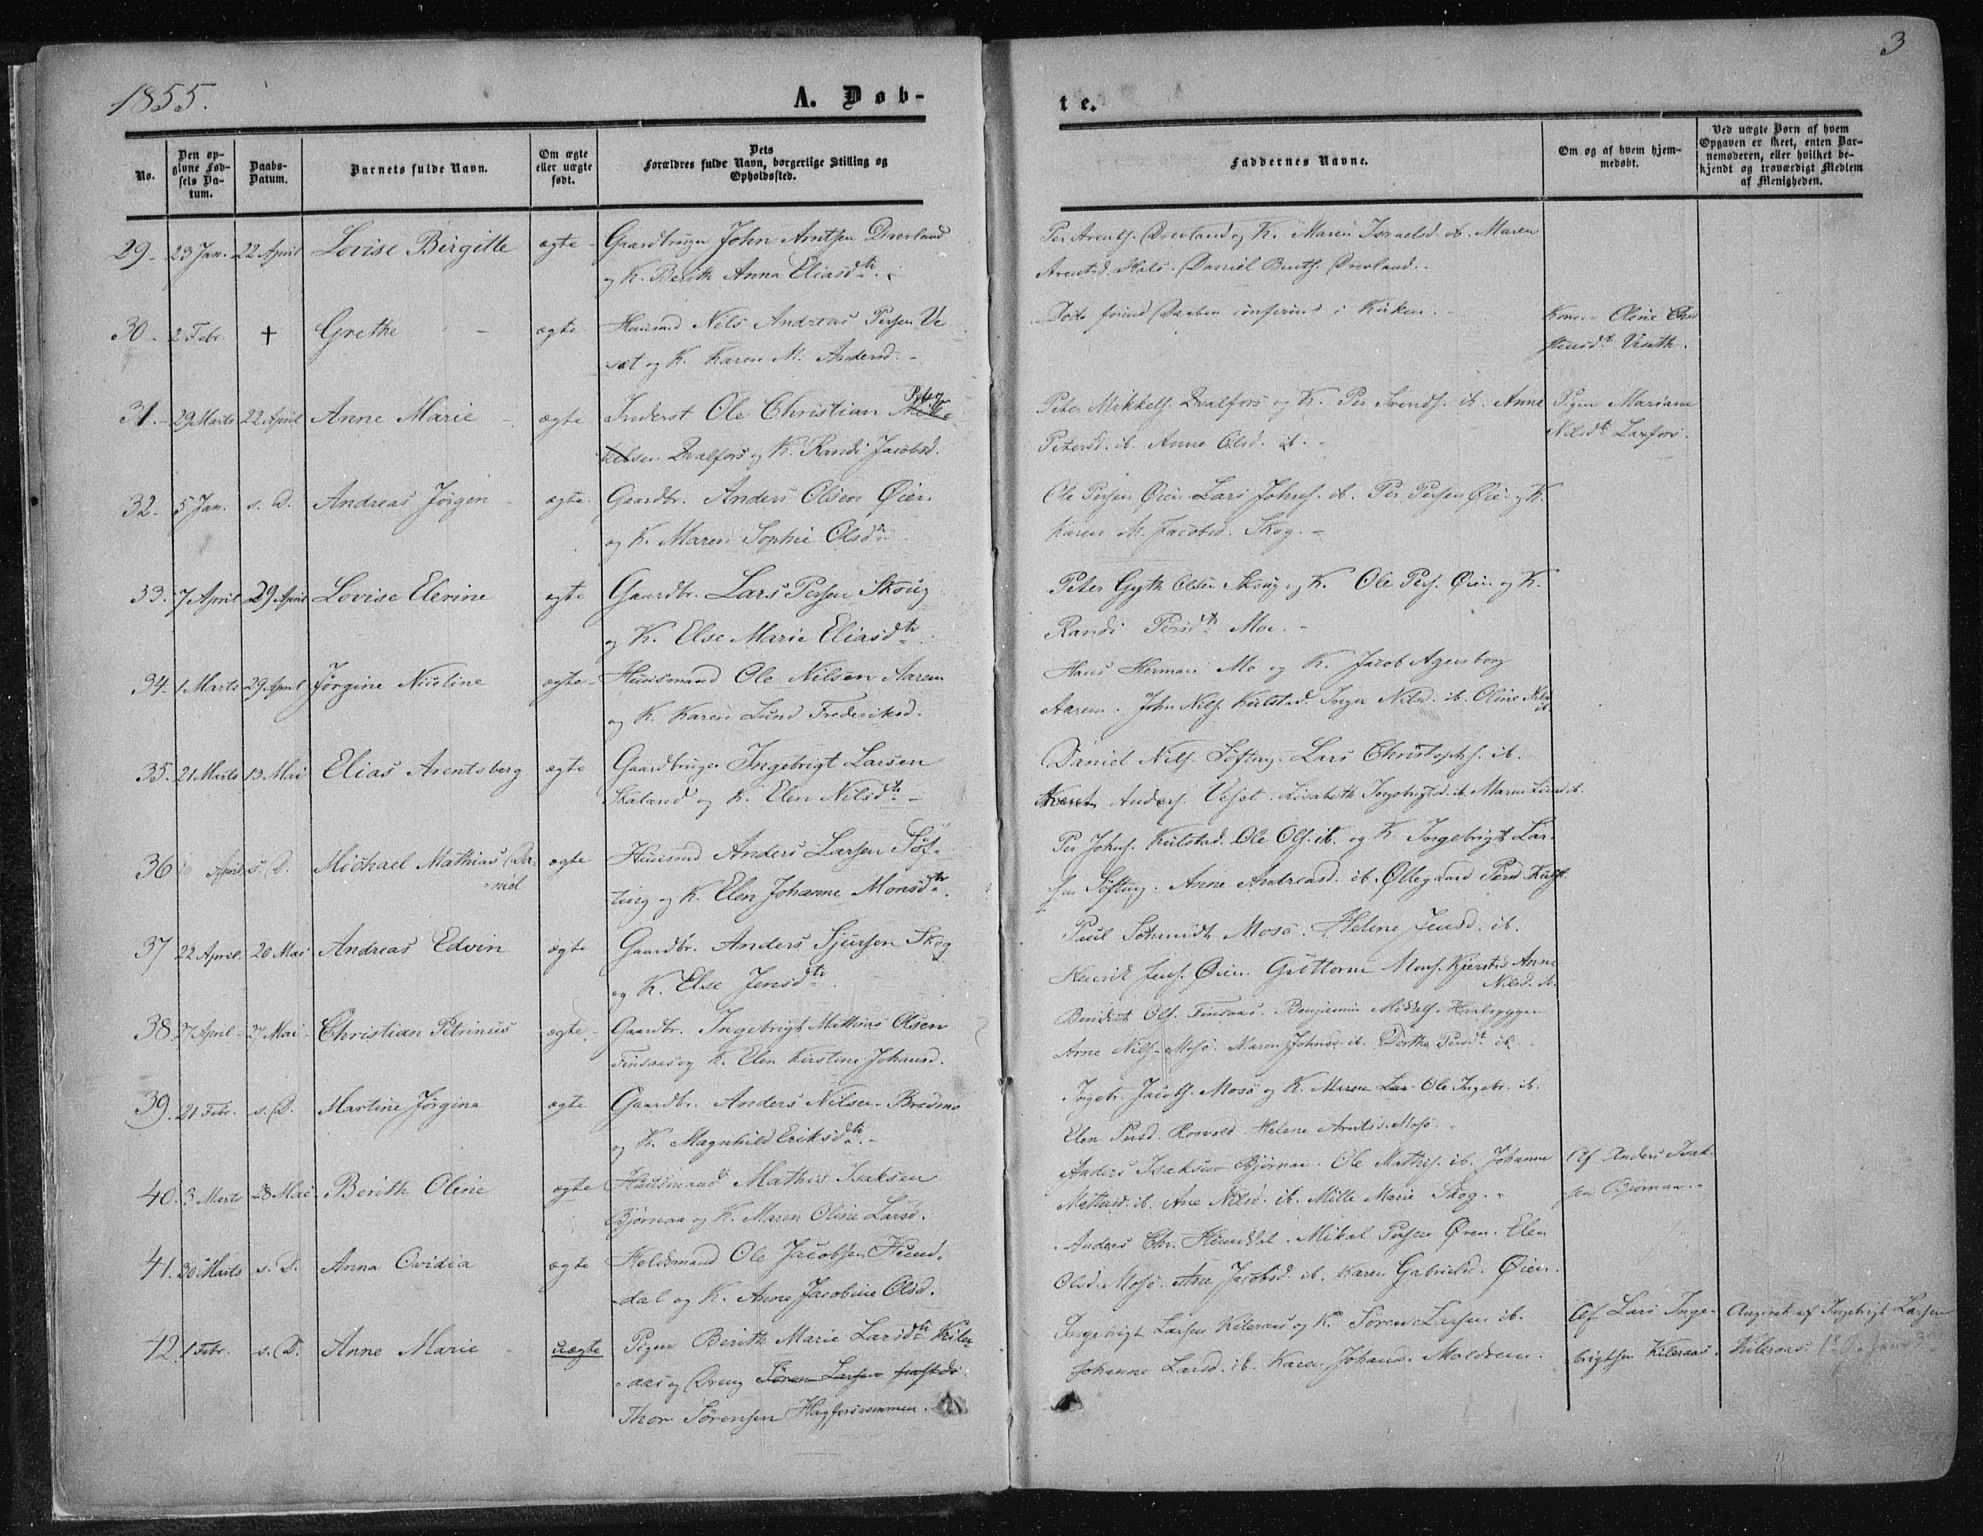 1855.
A. Døb-
te.
3
No.
Den op-
givne Fød-
sels Da-
tum.
Daabs-
Datum.
Barnets fulde Navn.
Om ægte
eller uægte
født.
Dets
Forældres fulde Navn, borgerlige Stilling og
Opholdssted.
Faddernes Navne.
Om og af hvem hjem-
medøbt.
Ved uægte Børn af hvem
Opgaven er skeet, enten Bar-
nemoderen, eller hvilket be-
kjendt og troværdigt Medlem
af Menigheden.
29 23 Jan. 22 April Lovise Birgitte ægte Gaardbruger John Arntsen Drevland
og K. Berith Anna Eliasdtr.
Per Arents. Drevland og K. Maren Israelsd. ib. Maren
Arentsd. Hals. Daniel Bents. Drevland.
30 2 Febr. † Grethe ægte Huusmd Nils Andreas Persen Ve
sat og K. Karen M. Andersd.
Døde forind Daaben i Kirken.
Kone Oline
stensdt. Vinth.
31. 29 Marts 22 April Anne Marie ægte Inderst Ole Christian Peter
kelsen Dvalfors og K. Randi Jacobsd.
Peter Mikkels. Dvalfors og K. Per Svends. ib. Anne
Petersd. ib. Anne Olsd. ib.
Pigen Mariane
Nilsdt. Laxfors.
32 5 Jan. s. D. Andreas Jørgen ægte Gaardbr. Anders Olsen Øien
og K. Maren Sophie Olsdtr
Ole Persen Øien Lars Johns. ib. Per Persen Øien og K.
Karen M. Jacobsd. Skog.
33. 7 April 29 April Lovise Elerine ægte Gaardbr. Lars Persen Skoug
og K. Else Marie Eliasdtr
Peter Gyth Olsen Skoug og K. Ole Pers. Øien og K.
Randi Persdtr Moe.
34 1 Marts 29 April Jørgine Nicoline ægte Huusmand Ole Nilsen Aarem
og K. Karen Lund Frederiksd.
Hans Herman Mo og K. Jacob Agersborg
Aarem. John Nils. Kulstad. Inger Nilsd. ib. Oline Nilsd
ib.
35. 21 Marts 13 Mai Elias Arentsberg ægte Gaardbruger Ingebrigt Larsen
Skaland og K. Elen Nilsdtr
Daniel Nils. Søfting. Lars Christophs. ib.
Anders. Vesat. Lisabeth Ingebrigtsd. ib. Maren Larsd ib.
36 April s. D. Michael Mathias Da-
niel ægte Huusmd Anders Larsen Søf-
ting og K. Elen Johanne Monsdtr.
Per Johns. Kulstad. Ole Ols. ib. og K. Ingebrigt Lar-
sen Søfting. Anne Andreasd. ib. Øllegaard Persd. Kulst
37 22 April 20 Mai Andreas Edvin ægte Gaardbr. Anders Sjursen Skog
og K. Else Jensdtr
Paul Schmidt Mosø. Helene Jensd. ib.
Henrik Jens. Øien. Guttorm Mons. Kjerstad Anne
Nilsd. ib.
38 27 April 27 Mai Christian Petrinus ægte Gaardbr. Ingebrigt Mathias Olsen
Finsaas og K. Elen Kirstine Johansd.
Bendict Ols. Finsaas. Benjamin
Arne Nils. Mosø. Maren Johnsd. ib. Dorthe Persdt ib.
39. 21 Febr. s. D. Martine Jørgine ægte Gaardbr. Anders Nilsen Bredmo
og K. Magnhild Eriksdtr.
Ingebr. Jacobs. Mosø og K. Ole Ingebr. ib.
Elen Persd. Rosvold. Helene Arntsd. Mosø.
40. 3 Marts 28 Mai Berith Oline ægte Huusmand Mathis Isaksen
Bjørnaa og K. Maren Oline Larsd.
Anders Isaksen Bjørnaa. Ole Mathis. ib. Johanne
Mathisd. ib. Ane Nilsd. ib. Mille Marie Skog.
Af Anders Isak-
sen Bjørnaa.
41. 30 Marts s. D. Anna Ovidia ægte Holdsmand Ole Jacobsen Hund-
dal og K. Anne Jacobine Olsd.
Anders Chr. Hunddal. Mikal Persen Øren. Elen
Olsd. Mosø. Ane Jacobsd. ib. Karen Gabrielsd. Øien.
42 1 Febr. s. D. Anne Marie uægte Pigen Berith Marie Larsdtr Kiler-
aas og Dreng Søren Larsen
Thor Sørensen Hagforsremmen.
Ingebrigt Larsen Kileraas og K. Søren Larsen ib.
Johanne Larsd. ib. Karen Johansd. Moldrem.
Af Lars Inge-
brigtsen Kileraas.
Angivet af Ingebrigt Larsen
Kileraas